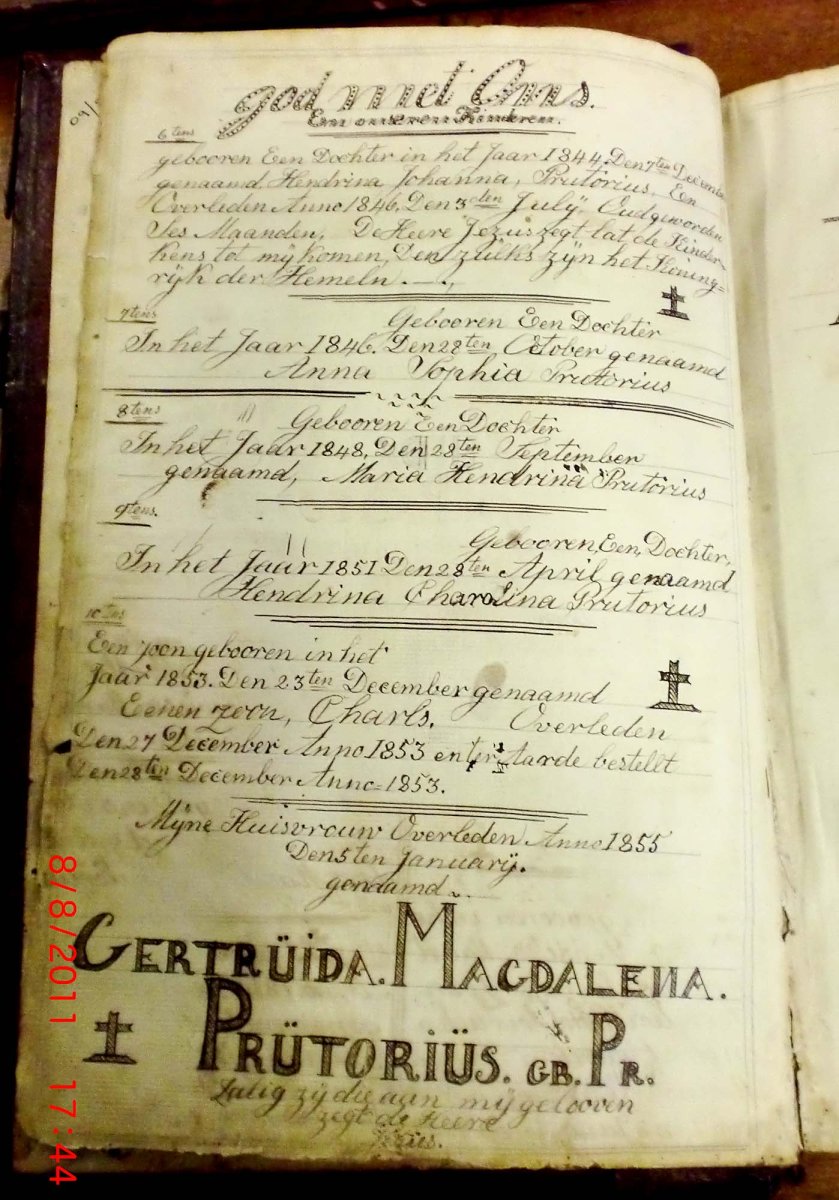 09/
God met Ons.
En onseren Kinderen.
6tens
gebooren Een Dochter in het Jaar 1844, Den 7ten Decemb
genaamd, Hendrina Johanna, Prutorius. Een
Overleden Anno 1846, Den 3den July, Oudgeworden
Ses Maanden, De Heere Jezus zegt lat de Kinder-
kens tot mÿ komen, Den zulks zÿn het Koning=
rÿk der Hemeln.
7tens
Gebooren Een Dochter
In het Jaar 1846. Den 28ten October genaamd
Anna Sophia Prutorius
8tens
Gebooren Een Dochter
In het Jaar 1848, Den 28ten September
genaamd, Maria Hendrina Prutorius
9tens.
Gebooren, Een, Dochter,
In het Jaar 1851 Den 28ten April genaamd
Hendrina Charolina Prutorius
10tens
Een zoon gebooren in het
Jaar 1853. Den 23ten December genaamd
Eenen zoon, Charls. Overleden
Den 27 December Anno 1853 en ter Aarde bestellt
Den 28ten December Anno = 1853.
Mÿne Huisvrouw Overleden Anno 1855
Den 5ten Januarÿ.
genaamd
GERTRÜIDA. MAGDALENA.
PRÜTORIÜS. GB. PR.
Zalig zÿ die aan mÿ gelooven
zegt de Heere
8/8/2011 17:44